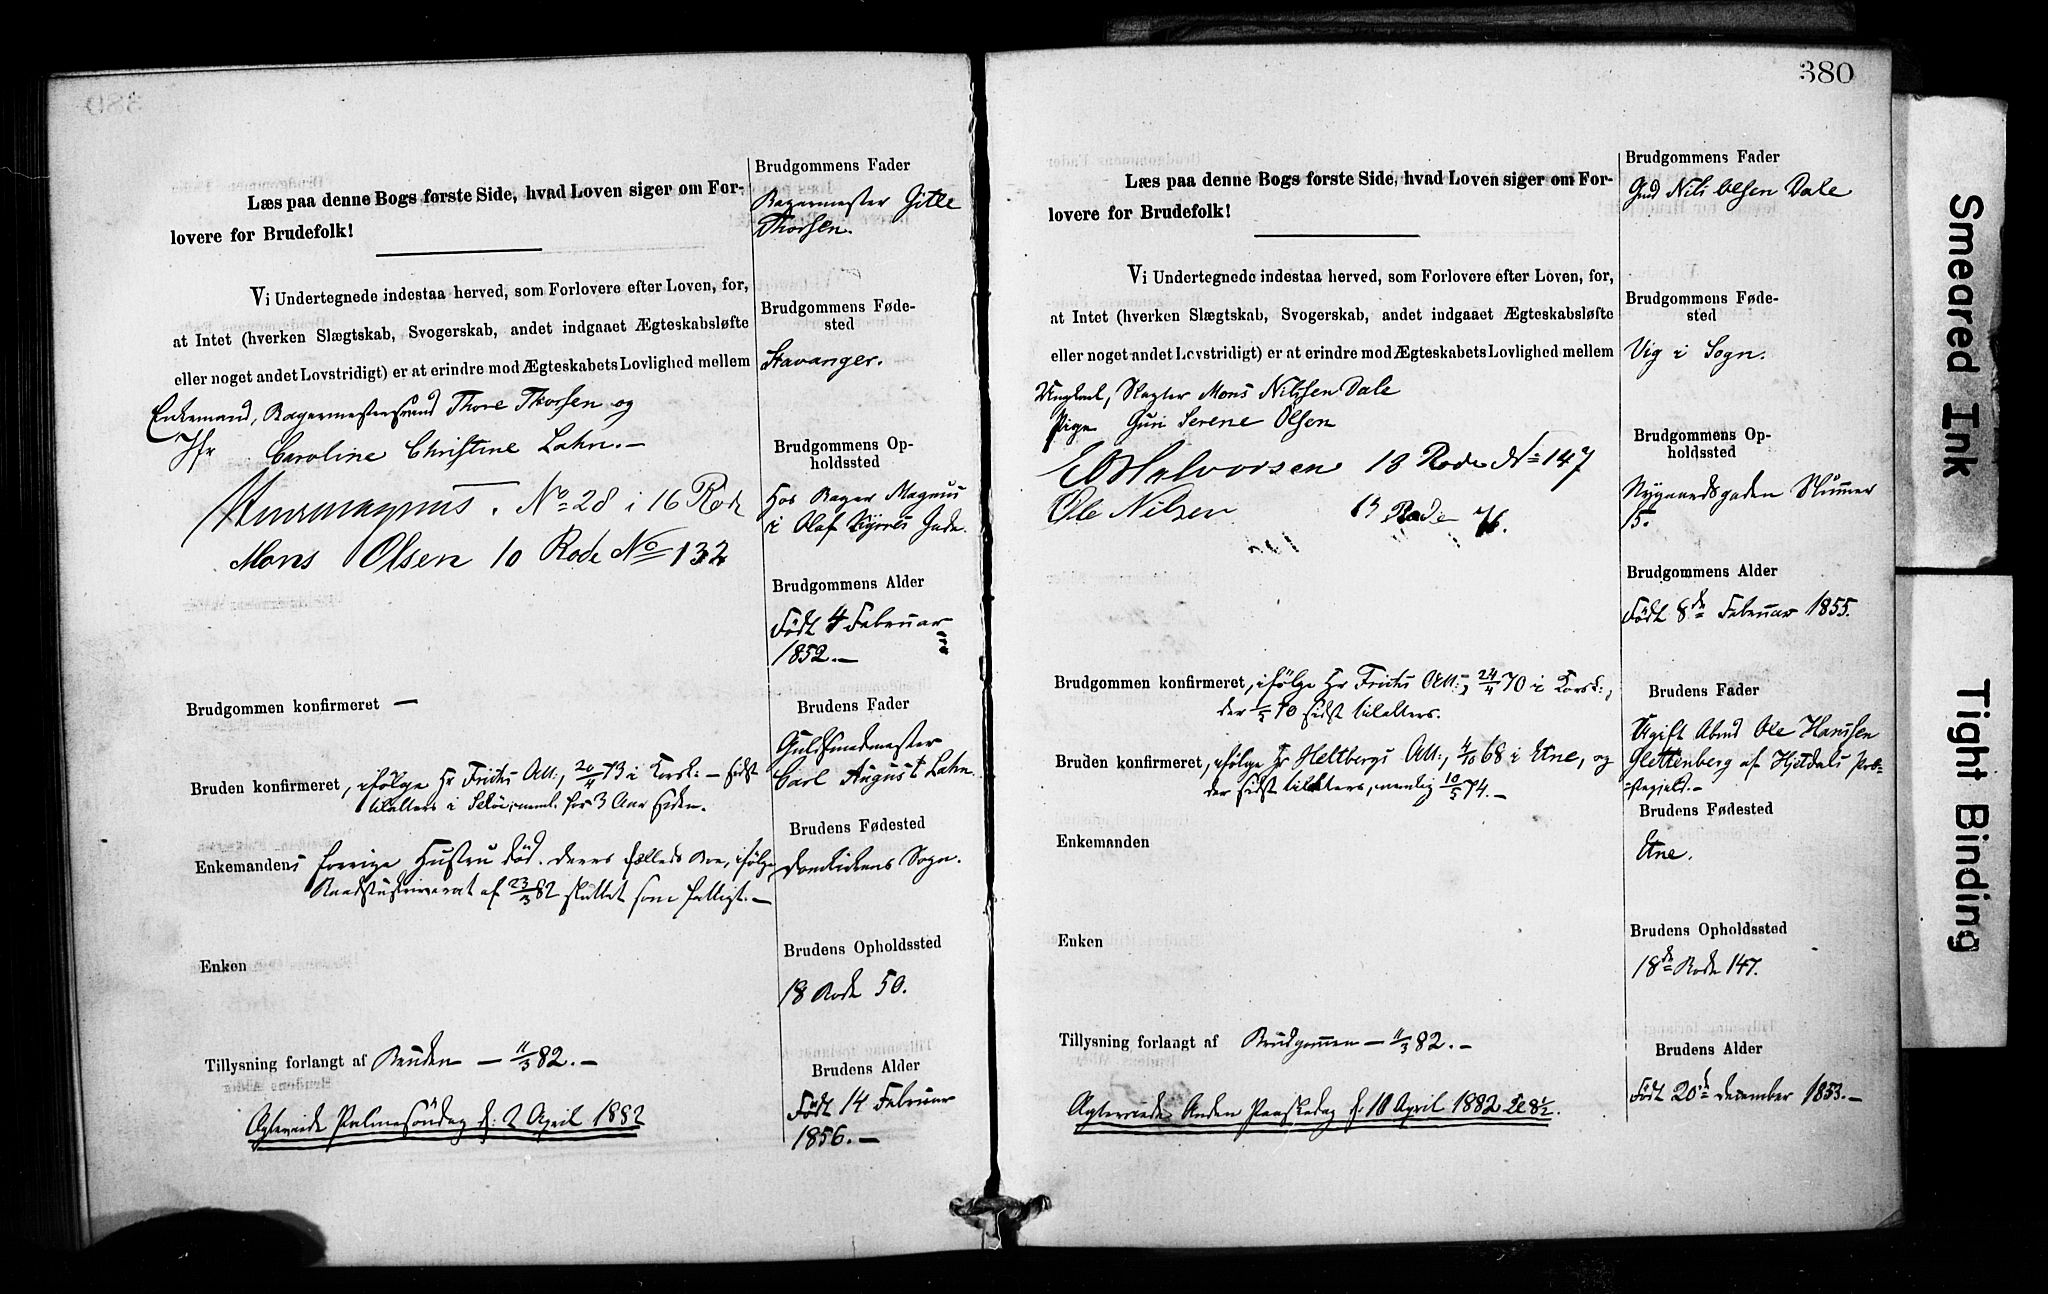 Læs paa denne Bogs første Side, hvad Loven siger om For-
lovere for Brudefolk!
Vi Undertegnede indestaa herved, som Forlovere efter Loven, for,
at Intet (hverken Slægtskab, Svogerskab, andet indgaaet Ægteskabsløfte
eller noget andet Lovstridigt) er at erindre mod Ægteskabets Lovlighed mellem
Enkemand, Bagermestersvend Thore Thorsen og
Jfr Caroline Christine Lahn. —
No 28 i 16 Rode
Mons Olsen 10 Rode No 132
Brudgommen konfirmeret —
Bruden konfirmeret, ifølge Hr Frichs Att:, 20/4 73 i Korsk: — sidst
tilalters i for 3 Aar siden.
Enkemandens forrige Hustru død. Deres fælleds Bo, ifølge
af 23/3 82 sluttet som fallit. —
Enken
Tillysning forlangt af Bruden — 11/3 82. —
Ægteviede Palmesöndag d: 2 April 1882
Brudgommens Fader
Bagermester Gitle
Thorsen.
Brudgommens Føde-
sted
Stavanger.
Brudgommens Op-
holdssted
Hos Bager Magnus
i Olaf Kyrres Gade.
Brudgommens Alder
Född 4 Februar
1852. —
Brudens Fader
Guldsmedmester
Carl August Lahn.
Brudens Fødested
Domkirkens Sogn.
Brudens Opholdssted
18 Rode 50.
Brudens Alder
Född 14 Februar
1856. —
380
Læs paa denne Bogs første Side, hvad Loven siger om For-
lovere for Brudefolk!
Vi Undertegnede indestaa herved, som Forlovere efter Loven, for,
at Intet (hverken Slægtskab, Svogerskab, andet indgaaet Ægteskabsløfte
eller noget andet Lovstridigt) er at erindre mod Ægteskabets Lovlighed mellem
Ungkarl, Slagter Mons Nilssen Dale
Pige Guri Serene Olsen
Halvorsen 18 Rode No 147
Ole Nilsen 13 Rode 76.
Brudgommen konfirmeret, ifølge Hr Frichs Att:, 24/4 70 i Korsk:,
der 1/5 70 sidst tilalters.
Bruden konfirmeret, ifølge Hr Heltbergs Att:, 4/10 68 i Etne, og
der sidst tilalters, nemlig 10/5 74. —
Enkemanden
Enken
Tillysning forlangt af Brudgommen — 11/3 82. —
Ægteviede Anden Paaskedag d: 10 April 1882 Kl 8½.
Brudgommens Fader
Gmd Nils Olsen Dale
Brudgommens Føde-
sted
Vig i Sogn.
Brudgommens Op-
holdssted
Nygaardsgaden Nummer
15.
Brudgommens Alder
Född 8de Februar 1855.
Brudens Fader
Ugift Abmd Ole Hanssen
Glettenberg af Hjetdals Præ-
stegjeld. —
Brudens Fødested
Etne.
Brudens Opholdssted
18de Rode 147.
Brudens Alder
Född 20de December 1853. —
Smeared Ink
Tight Binding